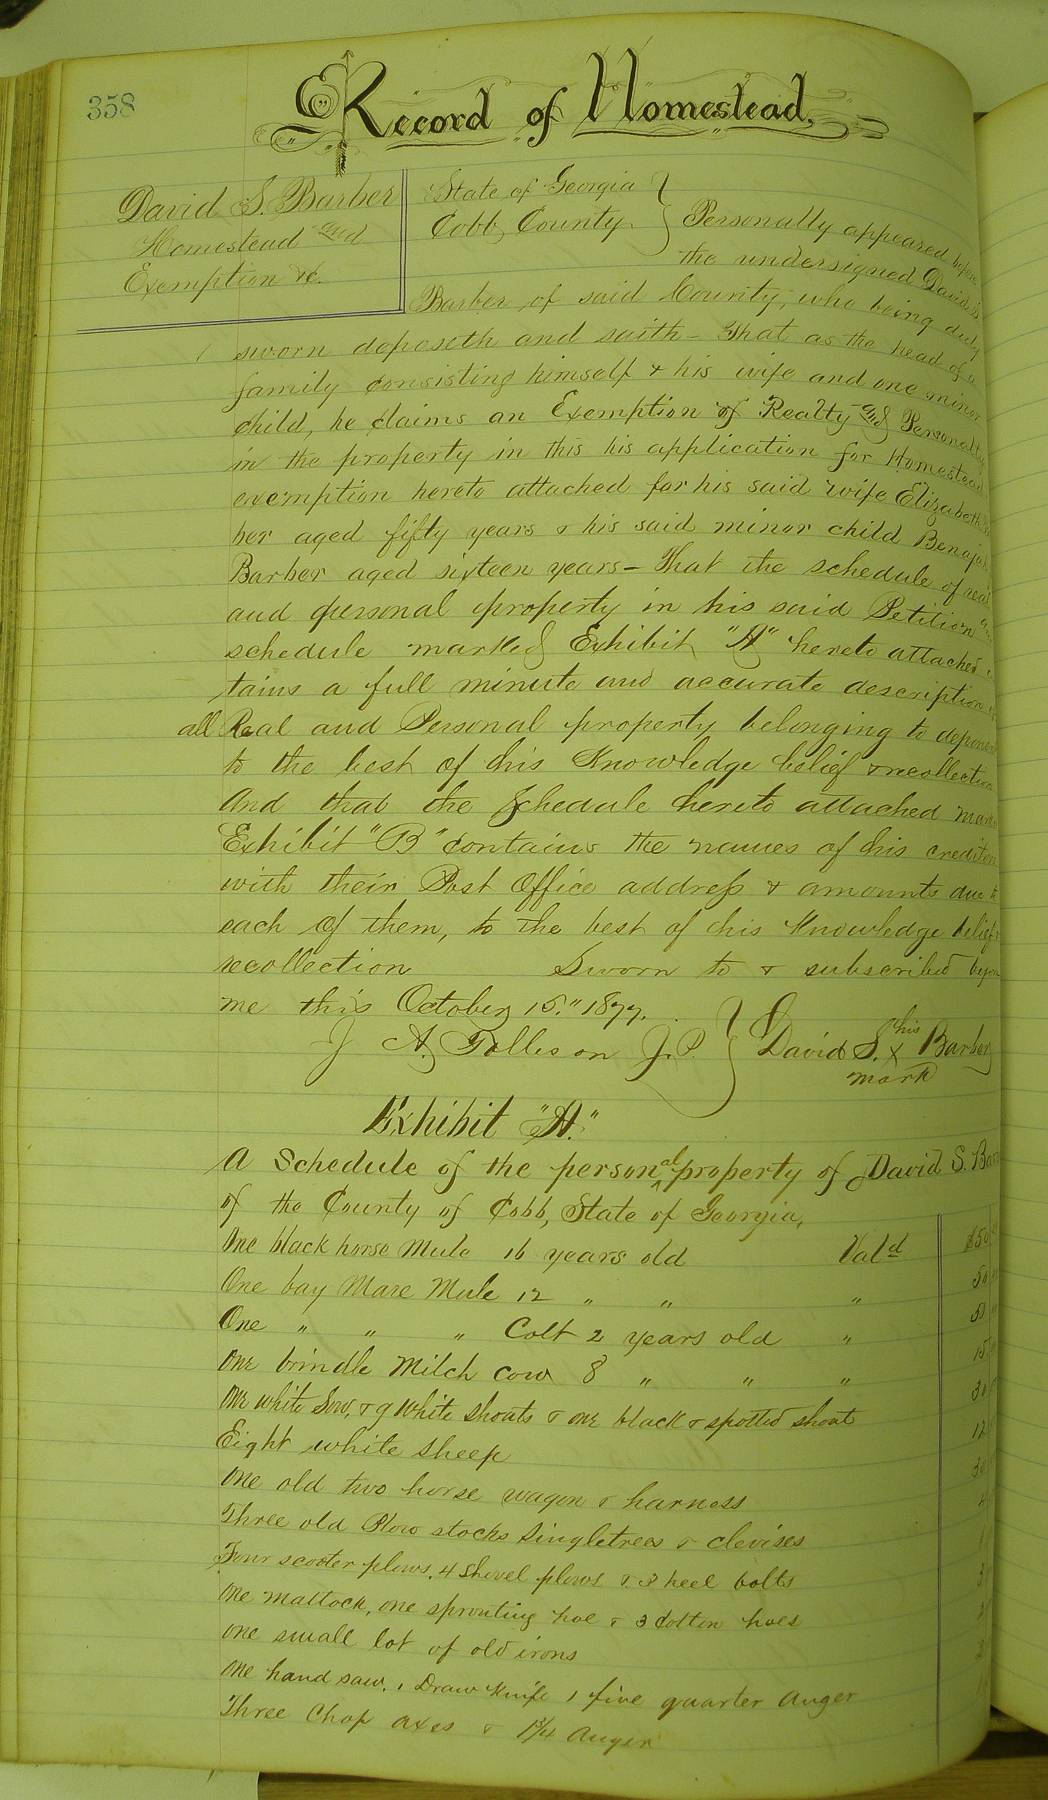 358
Record of Homestead.
David S. Barber
Homestead and
Exemption &c.
State of Georgia
Cobb, County.
Personally appeared before
the undersigned David S.
Barber of said County, who being duly
sworn deposeth and saith - That as the head of a
family consisting himself & his wife and one minor
child, he claims an Exemption of Realty and Personalty
in the property in this his application for Homestead
exemption hereto attached for his said wife Elizabeth Bar
ber aged fifty years & his said minor child Benajah
Barber aged sixteen years - That the schedule of real
and personal property in his said Petition and
schedule marked Exhibit "A" hereto attached
tains a full minute and accurate description of
all Real and Personal property belonging to deponent
to the best of his Knowledge belief & recollection
And that the Schedule hereto attached
Exhibit "B" contains the names of his creditors
with their Post Office address & amounts due to
each of them, to the best of his Knowledge belief &
recollection Sworn to & subscribed before
me this October 15." 1877.
J. A. Tolleson J.P. David S. his x mark Barber
Exhibit "A."
A Schedule of the personal property of David S. Bar
of the County of Cobb, State of Georgia,
One black horse Mule 16 years old Vald $50
One bay Mare Mule 12 " " " 50
One " " " Colt 2 years old " 50
One brindle Milch cow 8 " " " 15
One white Sow, & 9 white shouts & one black & spotted shout 30
Eight white sheep 12
One old two horse wagon & harness 30
Three old Plow stocks Singletrees & clevises 4
Four scooter plows, 4 shovel plows & 3 heel bolts
One mattock, one sprouting hoe & 3 Cotton hoes
One small lot of old irons
One hand saw, 1 Draw Knife 1 five quarter Auger
Three Chop axes & 1 3/4 Auger